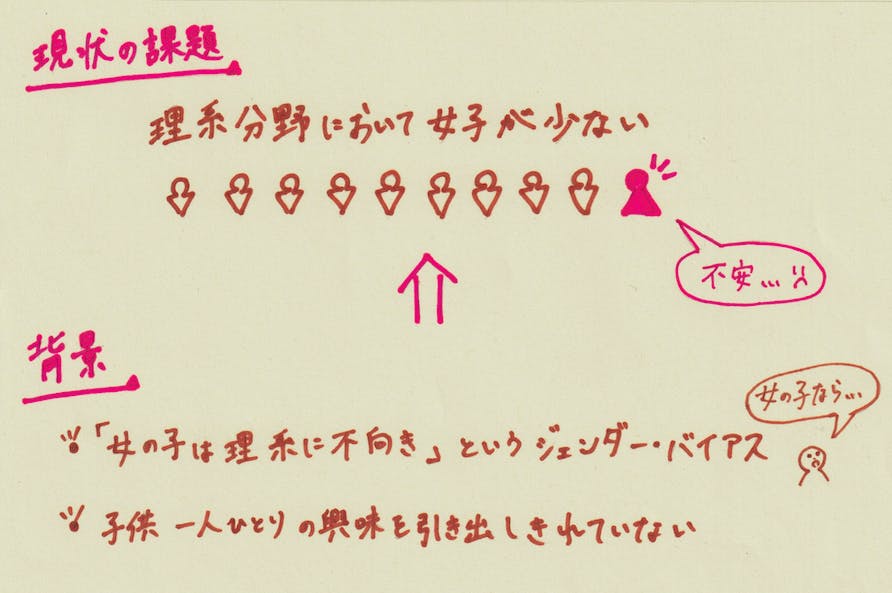 現状の課題
理系分野において女子が少ない
不安...
背景
女の子なら...
「女の子は理系に不向き」というジェンダー・バイアス
子供一人ひとりの興味を引き出しきれていない